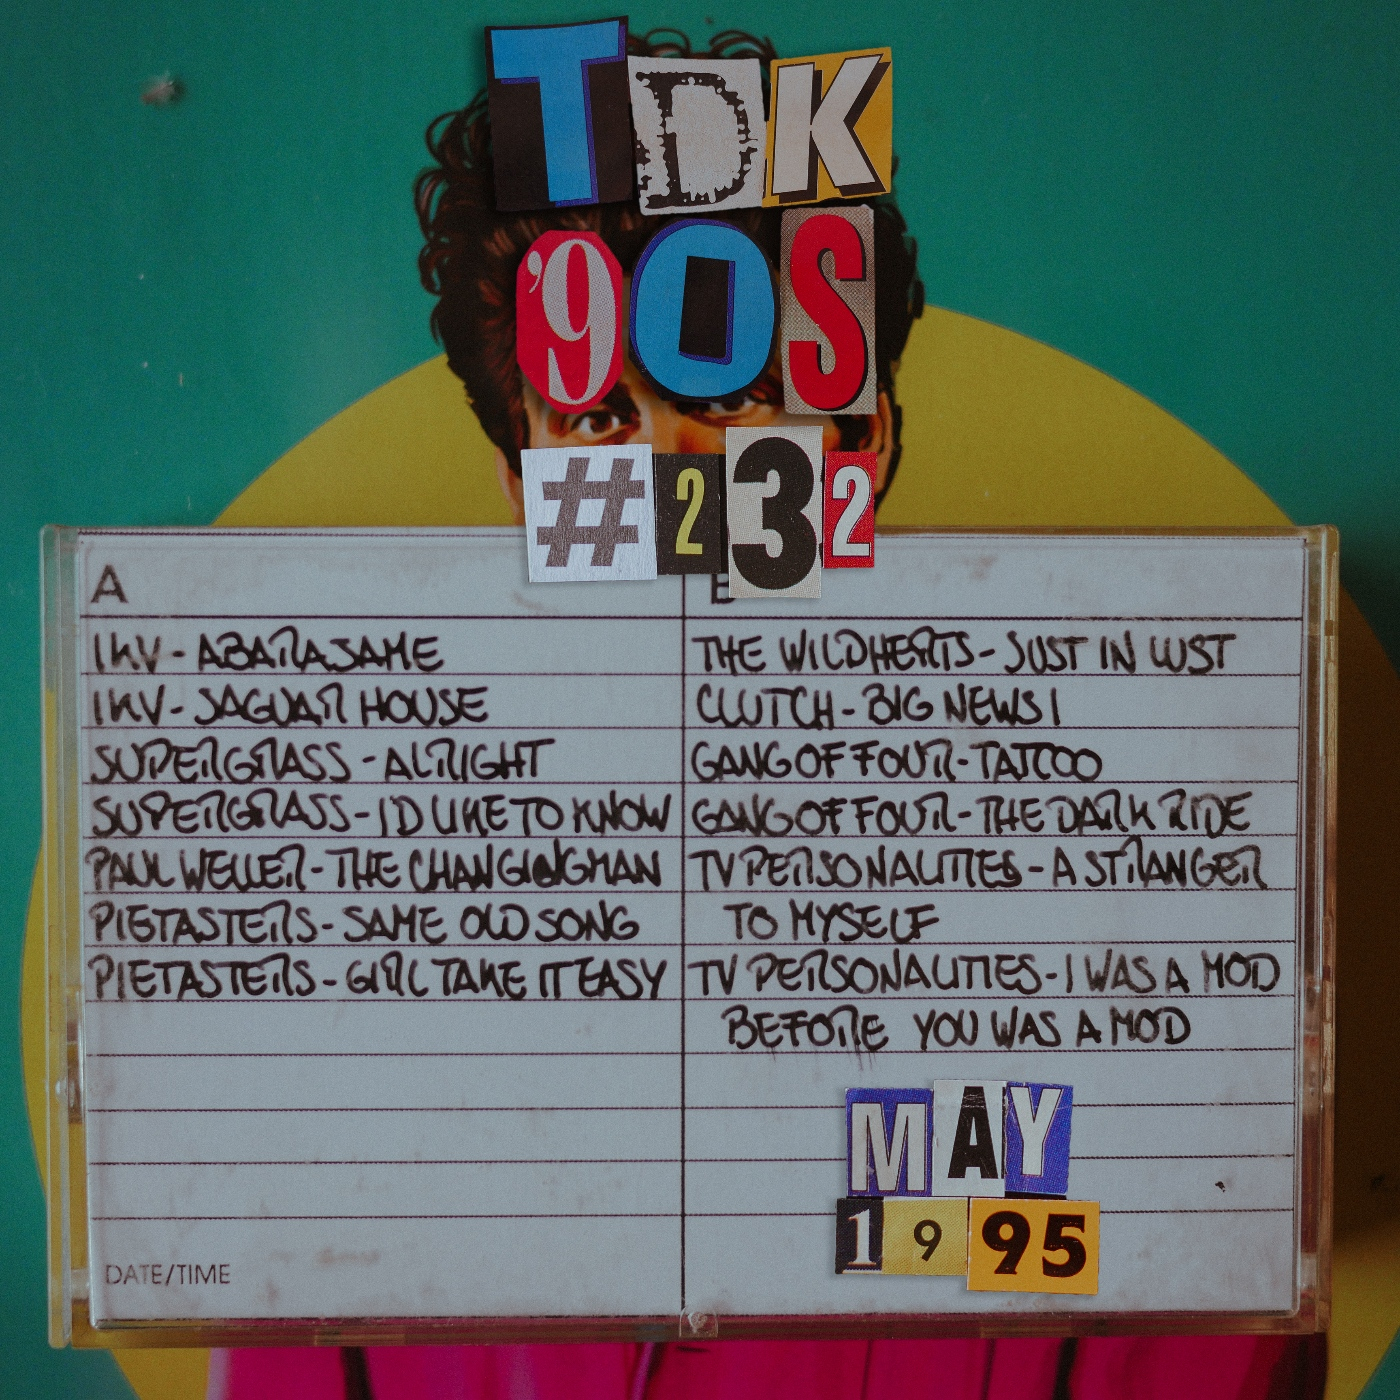 TDK
'90S
#232
A
B
1KV - ABARASAME
1KV - JAGUAR HOUSE
SUPERGRASS - ALRIGHT
SUPERGRASS - I'D LIKE TO KNOW
PAUL WELLER - THE CHANGINGMAN
PIETASTERS - SAME OLD SONG
PIETASTERS - GIRL TAKE IT EASY
THE WILDHERTS - JUST IN LUST
CLUTCH - BIG NEWS I
GANG OF FOUR - TATTOO
GANG OF FOUR - THE DARK RIDE
TV PERSONALITIES - A STRANGER
TO MYSELF
TV PERSONALITIES - I WAS A MOD
BEFORE YOU WAS A MOD
MAY
1995
DATE/TIME